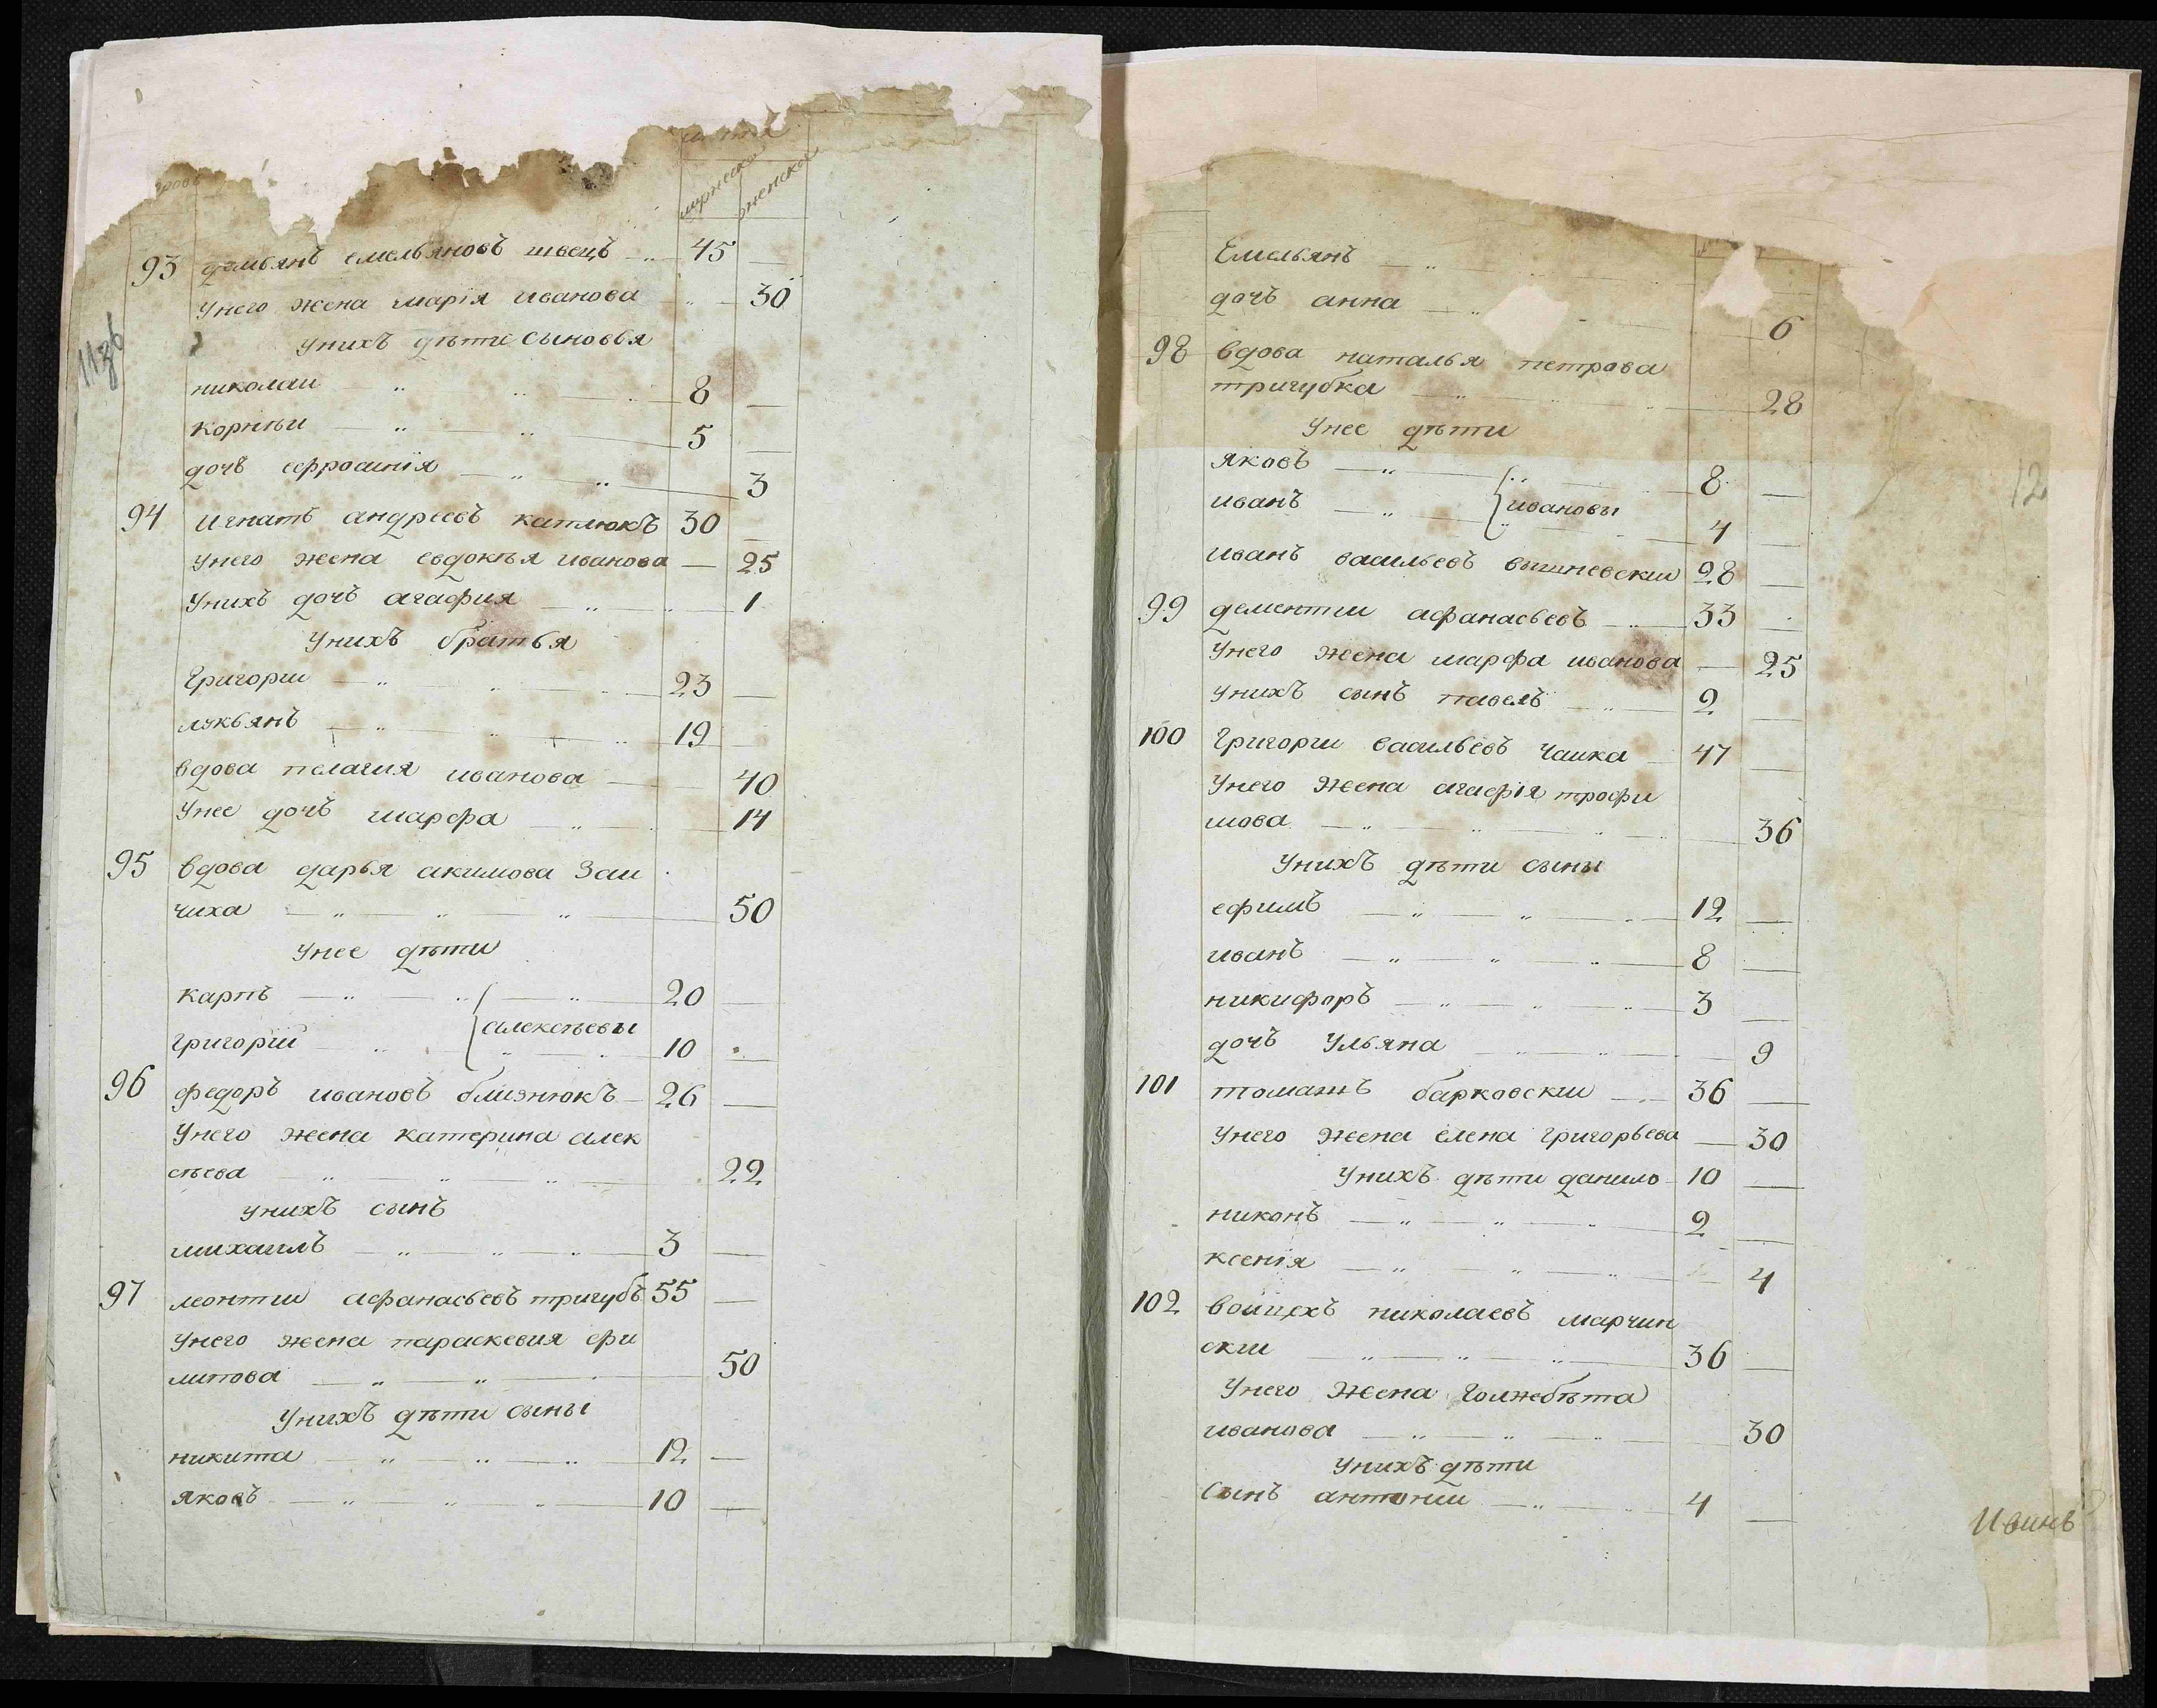 лѣта
мужеска
женска
93 демьянъ емельяновъ швецъ 45
Унего жена марія иванова 30
унихъ дѣти сыновья
николаи 8
корнѣи 5
дочъ ефросинія 3
94 игнатъ андреевъ катлюкъ 30
Унего жена евдокѣя иванова 25
Унихъ дочъ агафия 1
Унихъ братья
Григории 23
лукьянъ 19
вдова пелагия иванова 40
Унее дочъ марфа 14
95 вдова дарья акимова Заи
чиха 50
Унее дѣти
карпъ 20
алексѣевы
григории 10
96 федоръ ивановъ близнюкъ 26
Унего жена катерина алек
сѣева 22
унихъ сынъ
михаилъ 3
97 леонтии афанасьевъ тригубъ 55
Унего жена параскевия фи
липова 50
Унихъ дѣти сыны
никита 12
яковъ 10
12
Емельянъ
дочъ анна 6
98 вдова наталья петрова
тригубка 28
Унее дѣти
яковъ 8
ивановы
иванъ 4
иванъ васильевъ вышневскии 28
99 дементии афанасьевъ 33
Унего жена марфа иванова 25
унихъ сынъ павелъ 2
100 Григории васильевъ Чаика 47
Унего жена агафія трофи
мова 36
Унихъ дѣти сыны
ефимъ 12
иванъ 8
никифоръ 3
дочъ Ульяна 9
101 томашъ барковскии 36
Унего жена елена григорьева 30
Унихъ дѣти данило 10
никонъ 2
ксенія 4
102 воицехъ николаевъ марчин
скии 36
Унего женаГолжебѣта
иванова 30
Унихъ дѣти
Сынъ антонии 4